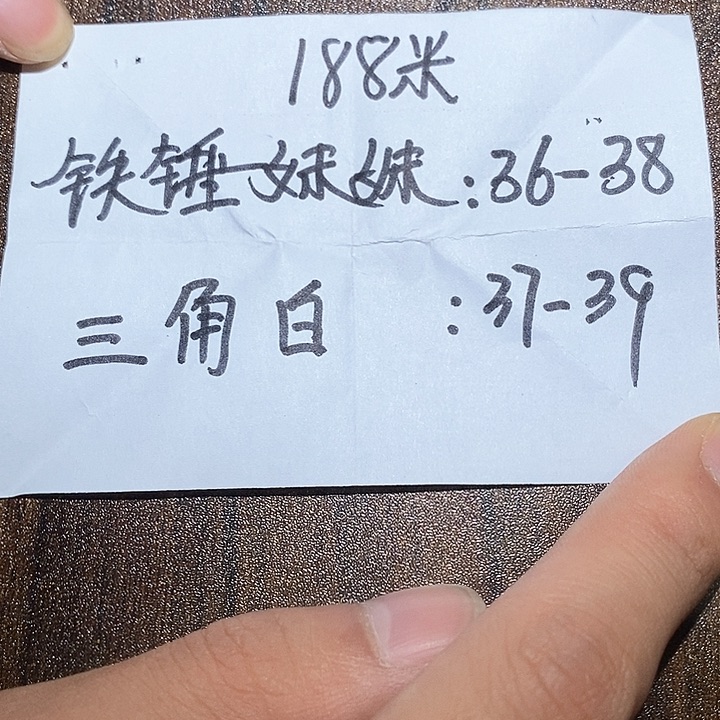 188米
铁锤妹妹:36-38
三角白:37-39